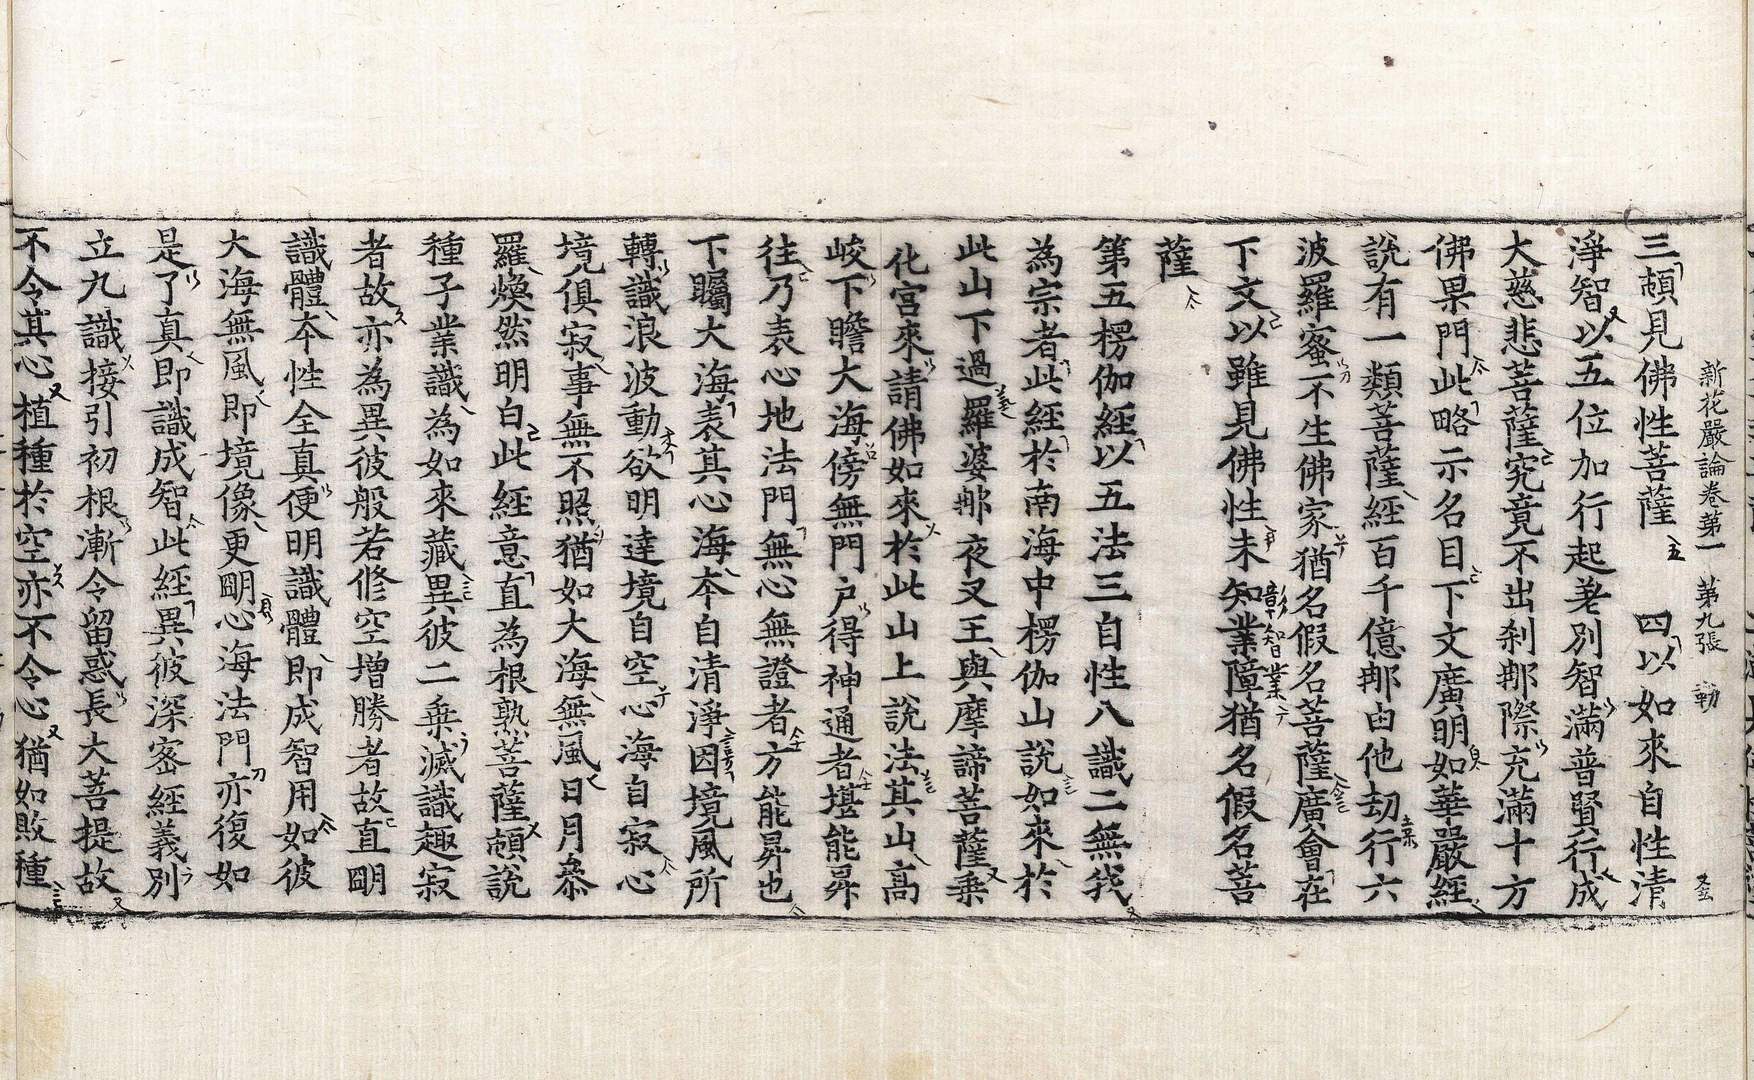 新花嚴論卷第一 第九張 勒
三頓見佛性菩薩 四以如來自性清
淨智以五位加行起差別智滿普賢行成
大慈悲菩薩究竟不出刹那際充滿十方
佛果門此略示名目下文廣明如華嚴經
說有一類菩薩經百千億那由他劫行六
波羅蜜不生佛家猶名假名菩薩廣會在
下文以雖見佛性未知業障猶名假名菩
彰智業
薩
第五楞伽經以五法三自性八識二無我
為宗者此經於南海中楞伽山說如來於
此山下過羅婆那夜叉王與摩諦菩薩乘
化宮來請佛如來於此山上說法其山高
峻下瞻大海傍無門戶得神通者堪能昇
往乃表心地法門無心無證者方能昇也
下矚大海表其心海本自清淨因境風所
轉識浪波動欲明達境自空心海自寂心
境俱寂事無不照猶如大海無風日月叅
羅煥然明白此經意直為根熟菩薩頓說
種子業識為如來藏異彼二乘滅識趣寂
者故亦為異彼般若修空增勝者故直明
識體本性全真便明識體即成智用如彼
大海無風即境像更明心海法門亦復如
是了真即識成智此經異彼深密經義別
立九識接引初根漸令留惑長大菩提故
不令其心植種於空亦不令心猶如敗種